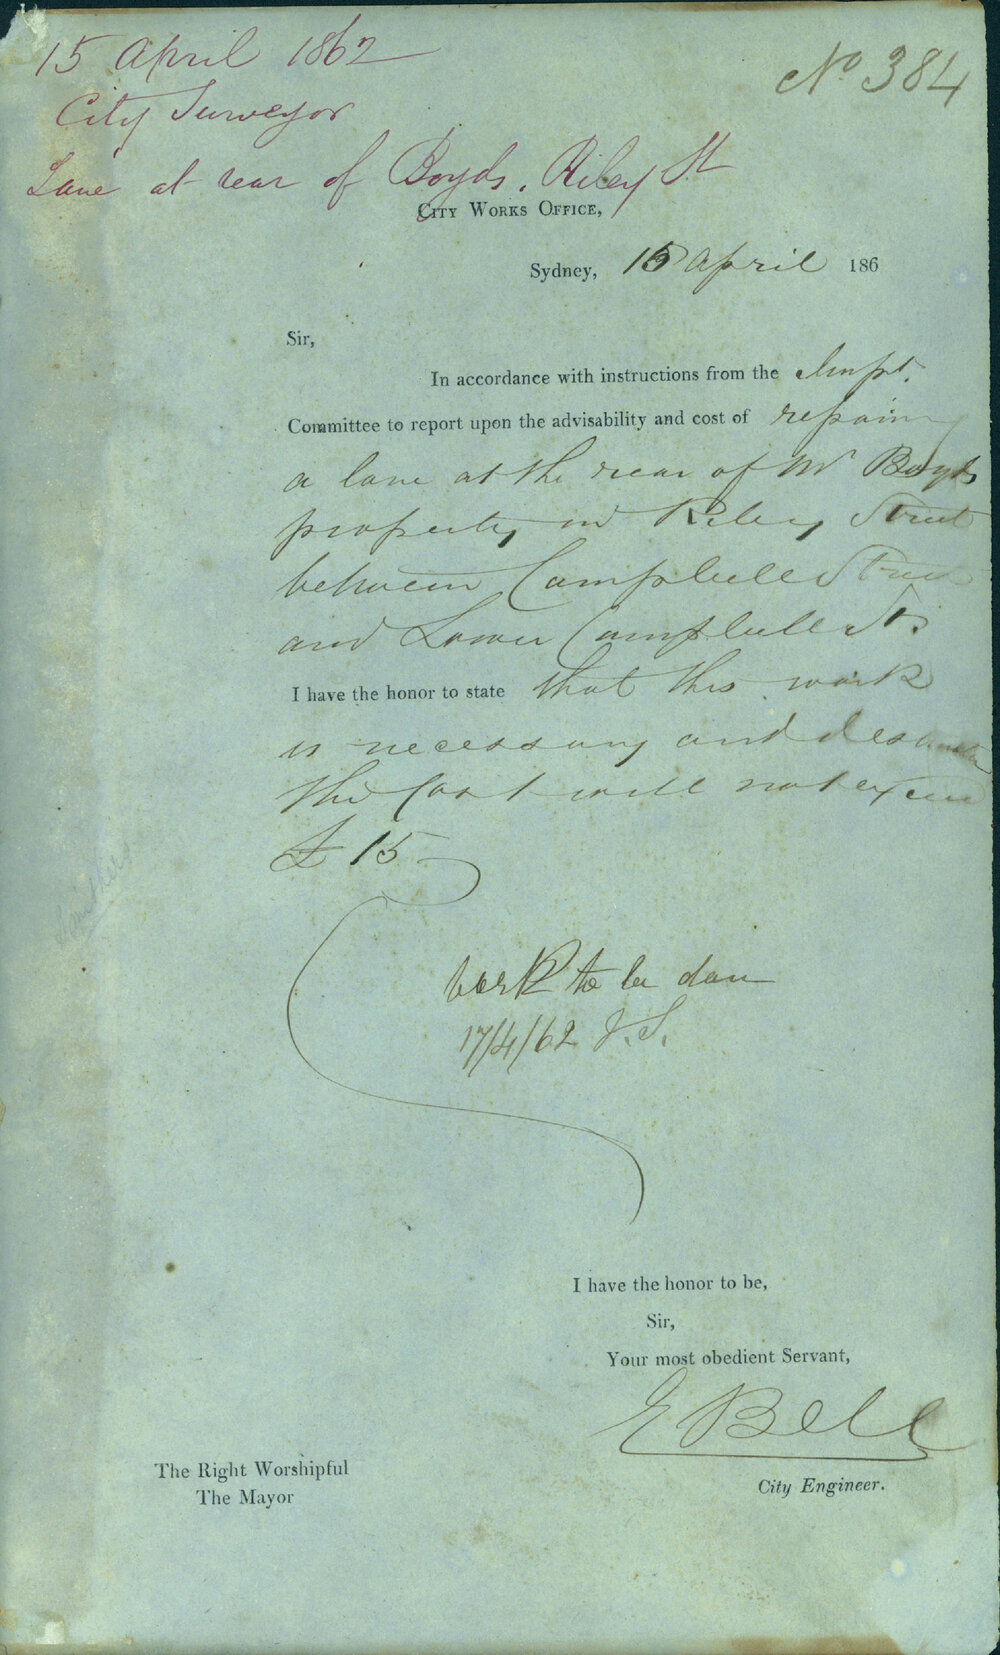 15 April 1862
No 384
City Surveyor
Lane at rear of Boyds, Riley St
CITY WORKS OFFICE,
Sydney, 15 April 186
Sir,
In accordance with instructions from the Impt.
Committee to report upon the advisability and cost of repairing
a lane at the rear of Mr Boyds
property in Riley Street
between Campbell Street
and Lower Campbell Sts
I have the honor to state that this work
is necessary and desirable
the Cost will not exceed
£ 15
Work to be done
17/4/62 J.S.
I have the honor to be,
Sir,
Your most obedient Servant,
E Bell
City Engineer.
The Right Worshipful
The Mayor